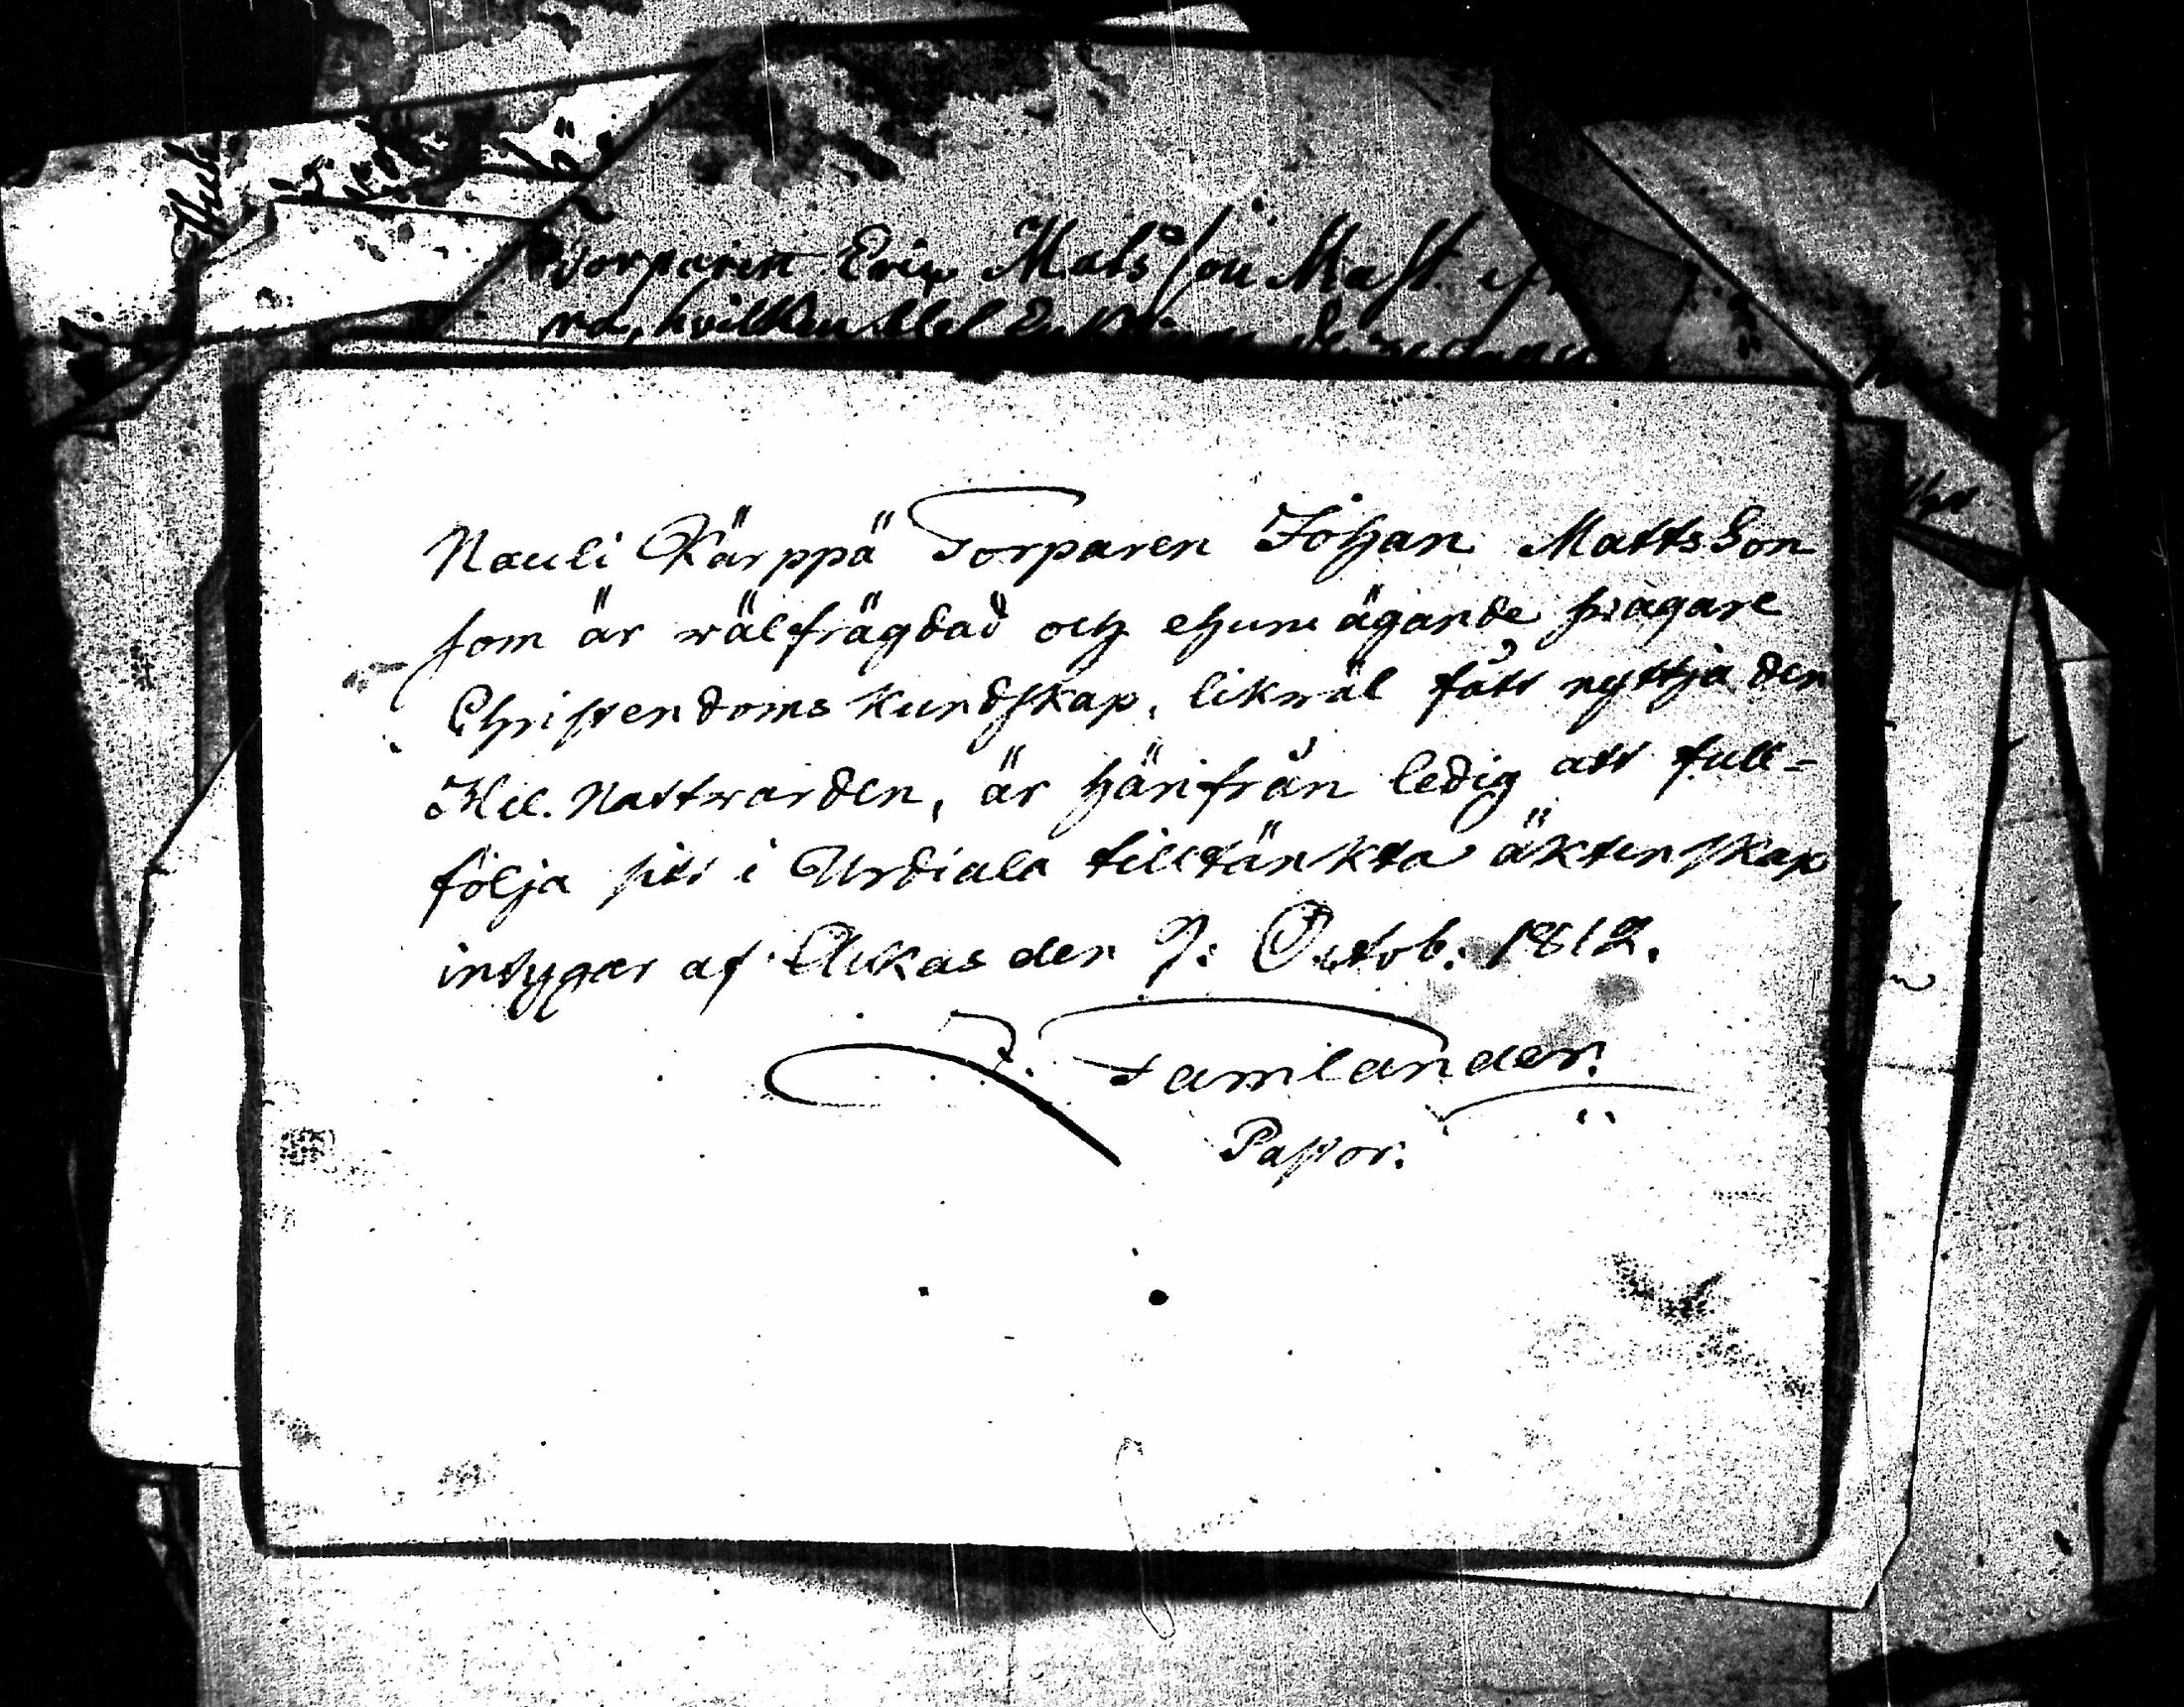 Torparen Eric Mats Son Mast
ra, hvilken
Nauli Kärppä Torparen Johan Matts Son
som är wälfrägdad och ehuru ägande swagare
Christendoms kundskap, likwäl fått nyttja den
Hel. Nattwarden, är härifrån ledig att full-
följa sitt i Urdiala tilltänkta äktenskap
intygar af Akkas den 9: Octob: 1812.
J. Tamlander.
Pastor.